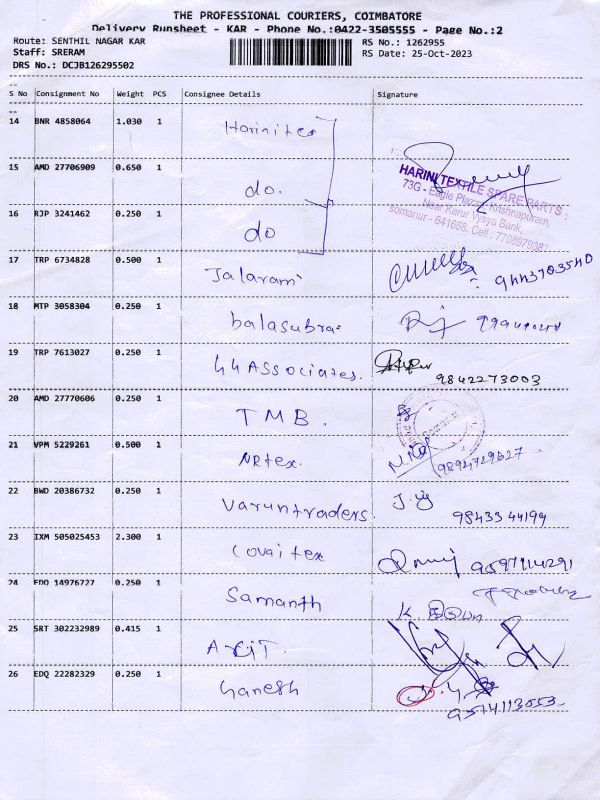 THE PROFESSIONAL COURIERS, COIMBATORE
Delivery Runsheet - KAR - Phone No.:0422-3505555 - Page No.:2
Route: SENTHIL NAGAR KAR RS No.: 1262955
Staff: SRERAM RS Date: 25-Oct-2023
DRS No.: DCJB126295502
S No Consignment No Weight PCS Consignee Details Signature
14 BNR 4858064 1.030 1 Harinitex
15 AMD 27706909 0.650 1 do.
HARINI TEXTILE SPARE PARTS
73G - Eagle Plazaa, Krishnapuram,
Near Karur Vysya Bank,
somanur - 641668, Cell : 7708979387
16 RJP 3241462 0.250 1 do
17 TRP 6734828 0.500 1 Jalaram
18 MTP 3058304 0.250 1 balasubra
19 TRP 7613027 0.250 1 Associates. 9842273003
20 AMD 27770606 0.250 1 TMB.
Somanur
21 VPM 5229261 0.500 1 NRtex. 9894729627
22 BWD 20386732 0.250 1 Varuntraders. 98433 44194
23 IXM 505025453 2.300 1 Covaitex
24 EDQ 14976727 0.250 1 Samanth
25 SRT 302232989 0.415 1
26 EDQ 22282329 0.250 1 Ganesh
9514113053